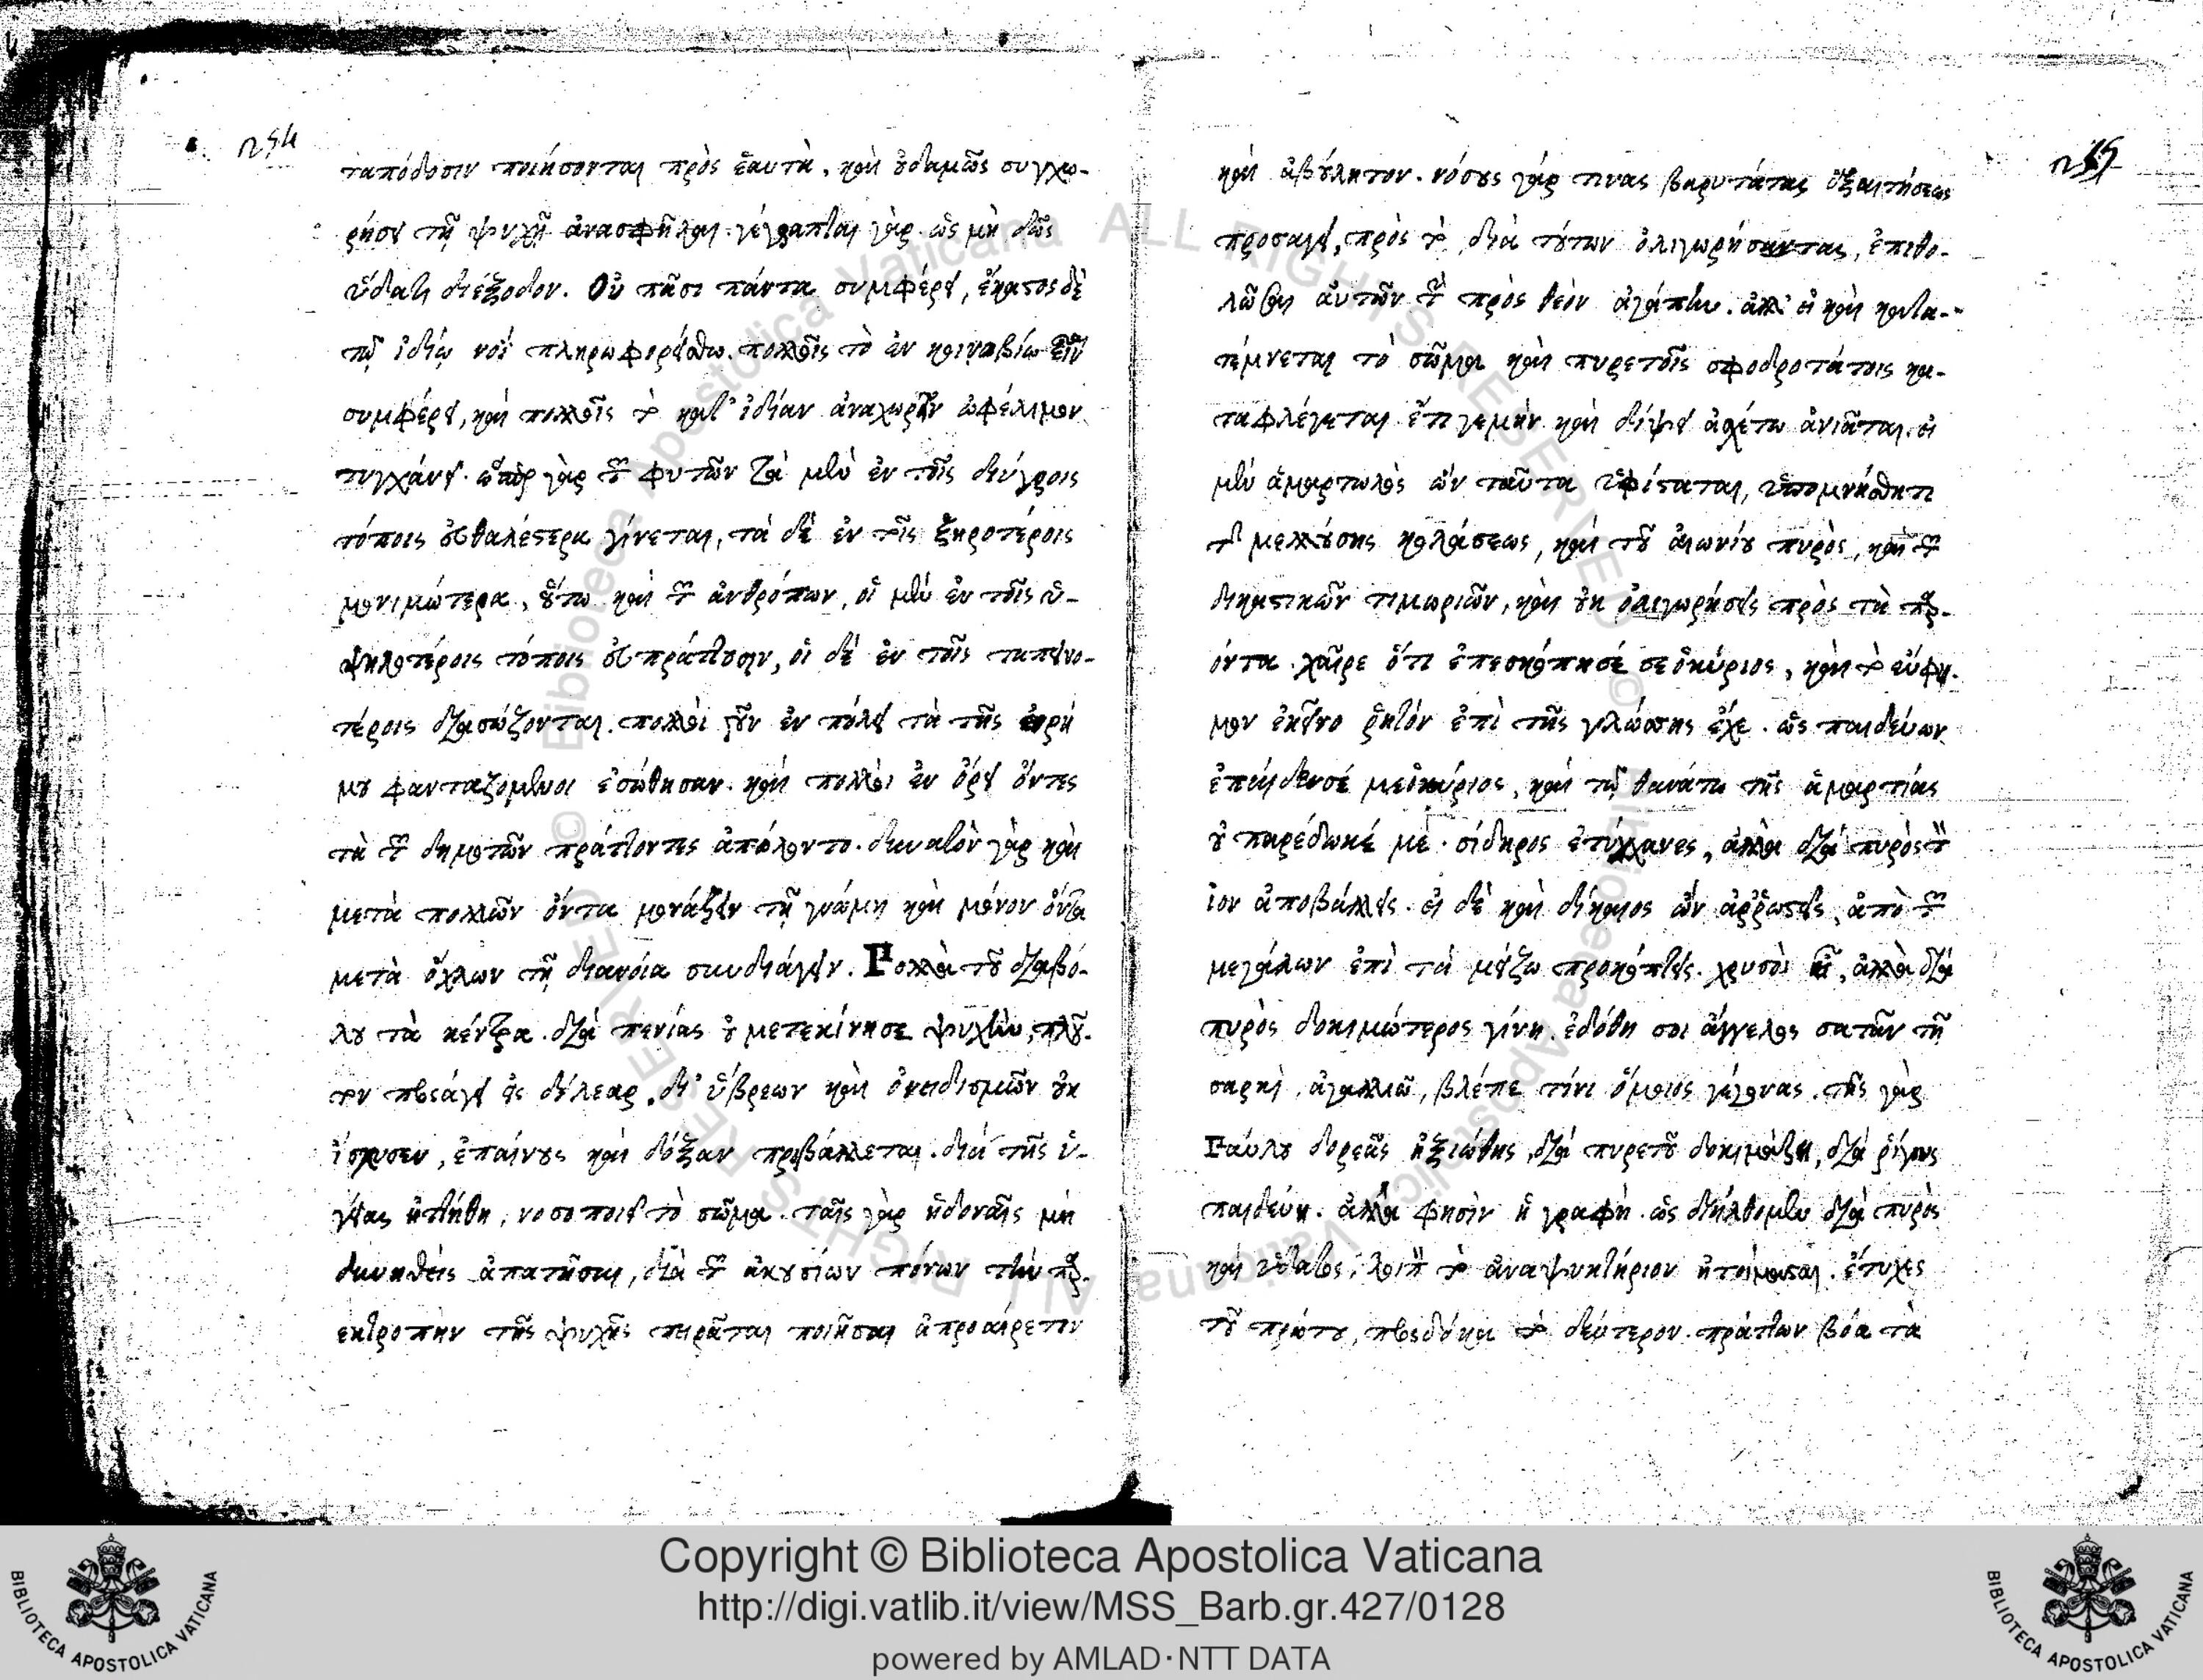 254
ταπόδοσιν ποιήσονται πρὸς ἑαυτὰ, καὶ οὐδαμῶς συγχω-
ρήσει τῇ ψυχῇ ἀνασφῆλαι. γέγραπται γὰρ. ὡς μὴ δῶς
ὕδατι διέξοδον. Οὐ πᾶσι πάντα συμφέρει, ἕκαστος δὲ
τῷ ἰδίῳ νοῒ πληροφορείσθω. πολλοῖς τὸ ἐν κοινοβίω εἶναι
συμφέρει, καὶ πολλοῖς τὸ κατ' ἰδίαν ἀναχωρεῖν ὠφέλιμον
τυγχάνει. ὥσπερ γὰρ τῶν φυτῶν τὰ μὲν ἐν τοῖς διύγροις
τόποις εὐθαλέστερα γίνεται, τὰ δὲ ἐν τοῖς ξηροτέροις
μονιμώτερα, οὕτω καὶ τῶν ἀνθρόπων, οἱ μὲν ἐν τοῖς ὑ-
ψηλοτέροις τόποις εὐπράττουσιν, οἱ δὲ ἐν τοῖς ταπεινο-
τέροις διασώζονται. πολλοὶ γοῦν ἐν πόλει τὰ τῆς ἐρή
μου φανταζομενοι ἐσώθησαν. καὶ πολλοὶ ἐν ὄρει ὄντες
τὰ τῶν δημοτῶν πράττοντες ἀπόλοντο. δυνατὸν γὰρ καὶ
μετὰ πολλῶν ὄντα μονάζειν τῇ γνώμη καὶ μόνον ὄντα
μετὰ ὄχλων τῇ διανοία συνδιάγειν. Πολλὰ τοῦ διαβό-
λου τὰ κέντρα. διὰ πενίας οὐ μετεκίνησε ψυχὴν, πλοῦ-
τον προσάγει εἰς δέλεαρ. δι' ὕβρεων καὶ ὀνειδισμῶν οὐκ
ἴσχυσεν, ἐπαίνους καὶ δόξαν προβάλλεται. διὰ τῆς ὑ-
γείας ἡττήθη, νοσοποιεῖ τὸ σῶμα. ταῖς γὰρ ἡδοναῖς μὴ
δυνηθεὶς ἀπατῆσαι, διὰ τῶν ἀκουσίων πόνων τὴν παρ-
εκτροπὴν τῆς ψυχῆς πειρᾶται ποιῆσαι ἀπροαίρετον
255
καὶ ἀβούλητον. νόσους γάρ τινας βαρυτάτας ἐξαιτήσεως
προσαγει, πρὸς τὸ διὰ τούτων ὀλιγωρήσαντας, ἐπιθο-
λῶσαι αὐτῶν τὴν πρὸς θεὸν ἀγάπην. ἀλλ' εἰ καὶ κατα-
τέμνεται τὸ σῶμα καὶ πυρετοῖς σφοδροτάτοις κα-
ταφλέγεται ἔτι γεμὴν καὶ δίψει ἀσχέτω ἀνιᾶται. εἰ
μὲν ἁμαρτωλὸς ὢν ταῦτα ὑφίσταται, ὑπομνήσθητι
τῆς μελλούσης κολάσεως, καὶ τοῦ αἰωνίου πυρὸς, καὶ τῶν
δικαστικῶν τιμωριῶν, καὶ οὐκ ὀλιγωρήσεις πρὸς τὰ παρ-
όντα. χαῖρε ὅτι ἐπεσκόπησέ σε ὁ κύριος, καὶ τὸ εὔφη-
μον ἐκεῖνο ῥητόν ἐπὶ τῆς γλώσσης ἔχε. ὡς παιδεύων
ἐπαίδευσέ με ὁ κύριος, καὶ τῷ θανάτω τῆς ἁμαρτίας
οὐ παρέδωκέ με. σίδηρος ἐτύγχανες, ἀλλὰ διὰ πυρὸς τὸν
ἰὸν ἀποβάλλεις. εἰ δὲ καὶ δίκαιος ὢν ἀρρωστεῖς, ἀπὸ τῶν
μεγάλων ἐπὶ τὰ μείζω προκόπτεις. χρυσὸς εἶ, ἀλλὰ διὰ
πυρὸς δοκιμώτερος γίνη. ἐδόθη σοι ἄγγελος σατᾶν τῇ
σαρκὶ, ἀγαλλιῶ, βλέπε τίνι ὅμοιος γέγονας. τῆς γὰρ
Παύλου δορεᾶς ἠξιώθης, διὰ πυρετοῦ δοκιμάζη, διὰ ῥίγους
παιδεύη. ἀλλὰ φησὶν ἡ γραφὴ. ὡς διήλθομεν διὰ πυρὸς
καὶ ὕδατος, λοιπὸν τὸ ἀναψυκτήριον ἡτοίμασται. ἔτυχες
τοῦ πρώτου, προσδόκα τὸ δεύτερον. πράττων βόα τὰ
Copyright © Biblioteca Apostolica Vaticana
http://digi.vatlib.it/view/MSS_Barb.gr.427/0128
powered by AMLAD·NTT DATA
BIBLIOTECA APOSTOLICA VATICANA
BIBLIOTECA APOSTOLICA VATICANA